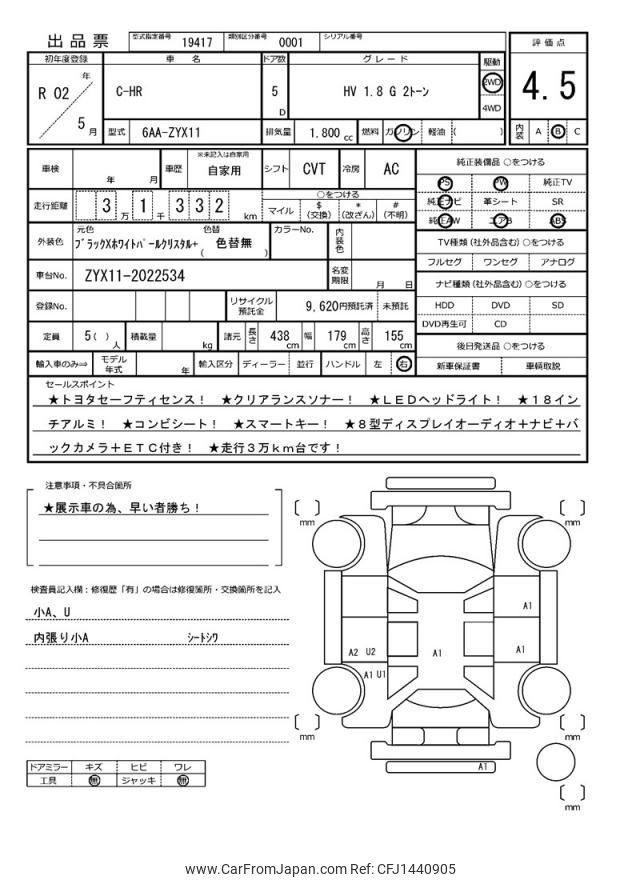 出品票
型式指定番号 19417 類別区分番号 0001 シリアル番号
評価点
4.5
内装 A B C
初年度登録 車名 ドア数 グレード 駆動
R 02 年 5 月
C-HR
5 D
HV 1.8 G 2トーン
2WD
4WD
型式 6AA-ZYX11 排気量 1.800 cc 燃料 ガソリン 軽油 ( )
車検 年 月 車歴 ※未記入は自家用 自家用 シフト CVT 冷房 AC
走行距離 3 万 1 千 3 3 2 km
○をつける
マイル $(交換) *(改ざん) #(不明)
外装色 元色 色替
ブラックXホワイトパールクリスタル+ ( 色替無 )
カラーNo. 内装色
車台No. ZYX11-2022534 名変期限 月 日
登録No. リサイクル預託金 9,620円預託済 未預託
定員 5( )人 積載量 kg 諸元 長さ 438 cm 幅 179 cm 高さ 155 cm
輸入車のみ⇒ モデル年式 年 輸入区分 ディーラー 並行 ハンドル 左 右
純正装備品 ○をつける
PS PW 純正TV
純正ナビ 革シート SR
純正AW エアB ABS
TV種類(社外品含む)○をつける
フルセグ ワンセグ アナログ
ナビ種類(社外品含む)○をつける
HDD DVD SD
DVD再生可 CD
後日発送品 ○をつける
新車保証書 車輌取説
セールスポイント
★トヨタセーフティセンス! ★クリアランスソナー! ★LEDヘッドライト! ★18イン
チアルミ! ★コンビシート! ★スマートキー! ★8型ディスプレイオーディオ+ナビ+バ
ックカメラ+ETC付き! ★走行3万km台です!
注意事項・不具合箇所
★展示車の為、早い者勝ち!
検査員記入欄:修復歴「有」の場合は修復箇所・交換箇所を記入
小A、U
内張り小A シートシワ
ドアミラー キズ ヒビ ワレ
工具 無 ジャッキ 無
mm
mm
A1
A2 U2
A1
A1
A1 U1
mm
mm
A1
mm
www.CarFromJapan.com Ref: CFJ1440905